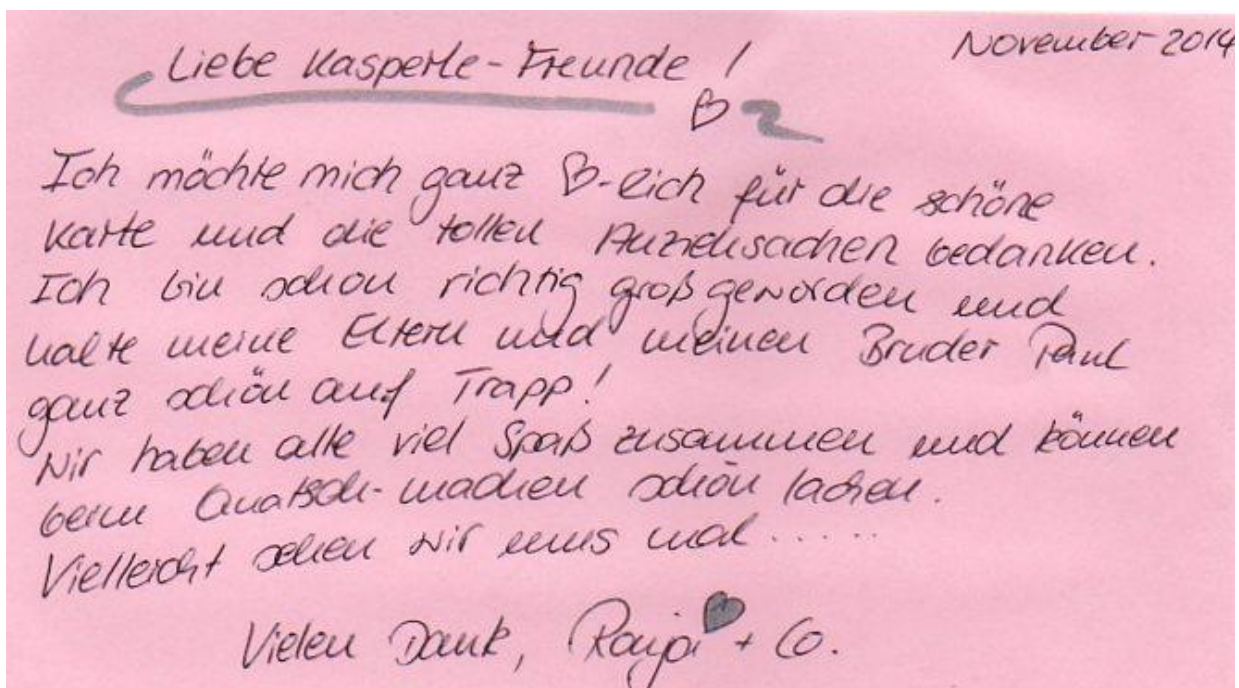 November 2014
Liebe Kasperle-Freunde !
Ich möchte mich ganz ♡-lich für die schöne
Karte und die tollen Anziehsachen bedanken.
Ich bin schon richtig groß geworden und
halte meine Eltern und meinen Bruder Paul
ganz schön auf Trapp!
Wir haben alle viel Spaß zusammen und können
beim Quatsch-machen schön lachen.
Vielleicht sehen wir uns mal......
Vielen Dank, + Co.